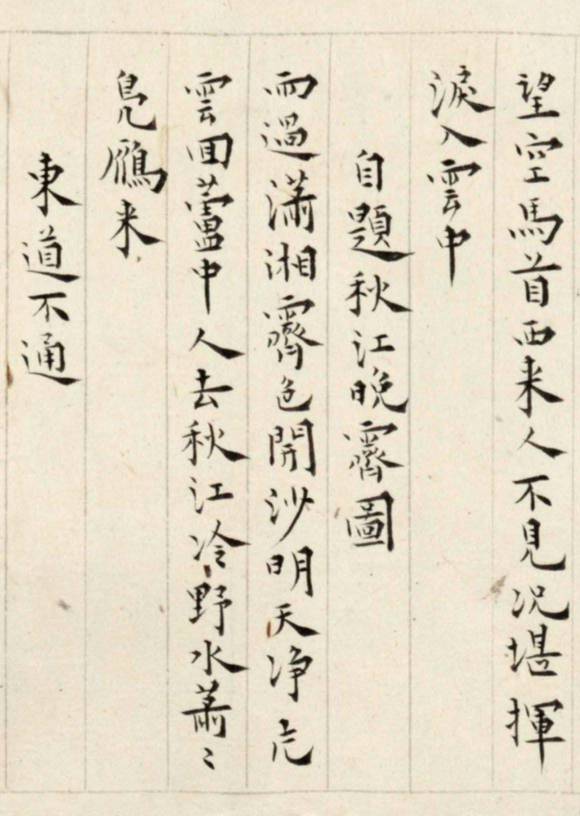 望空馬首西来人不見况堪揮
淚入雲中
自題秋江晚霽圖
雨過瀟湘霽色開沙明天净
雲回蘆中人去秋江冷野水蕭〻
鳧鴈来
東道不通